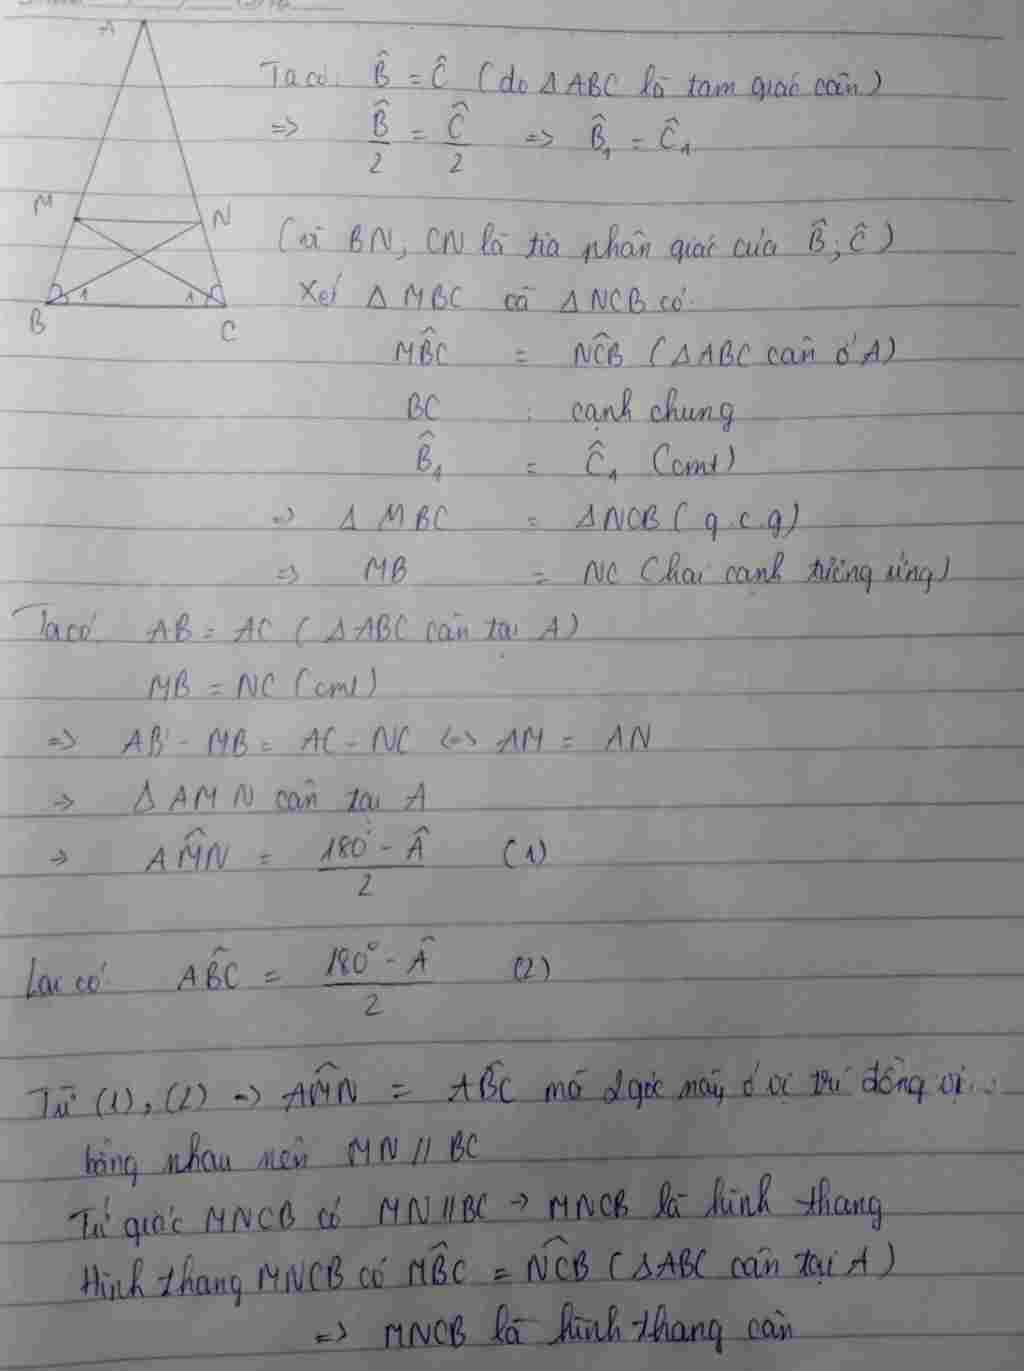 A
M
N
1
1
B
C
Ta có: B̂ = Ĉ (do ΔABC là tam giác cân)
=> B̂/2 = Ĉ/2 => B̂₁ = Ĉ₁
(vì BN, CN là tia phân giác của B̂, Ĉ)
Xét ΔMBC cà ΔNCB có
MB̂C = NĈB (ΔABC cân ở A)
BC : cạnh chung
B̂₁ = Ĉ₁ (cmt)
=> ΔMBC = ΔNCB (g.c.g)
=> MB = NC (hai cạnh tương ứng)
Ta có: AB = AC (ΔABC cân tại A)
MB = NC (cmt)
=> AB - MB = AC - NC <=> AM = AN
=> ΔAMN cân tại A
=> AM̂N = (180° - Â)/2 (1)
Lại có AB̂C = (180° - Â)/2 (2)
Từ (1), (2) => AM̂N = AB̂C mà 2 góc này ở vị trí đồng vị
bằng nhau nên MN // BC
Tứ giác MNCB có MN // BC -> MNCB là hình thang
Hình thang MNCB có MB̂C = NĈB (ΔABC cân tại A)
=> MNCB là hình thang cân